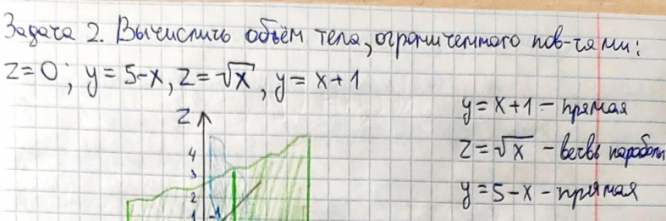 Задача 2. Вычислить объём тела, ограниченного пов-тями:
z=0; y=5-x, z=√x, y=x+1
y=x+1 - прямая
z
z=√x - ветвь параболы
4
3
y=5-x - прямая
2
1
1